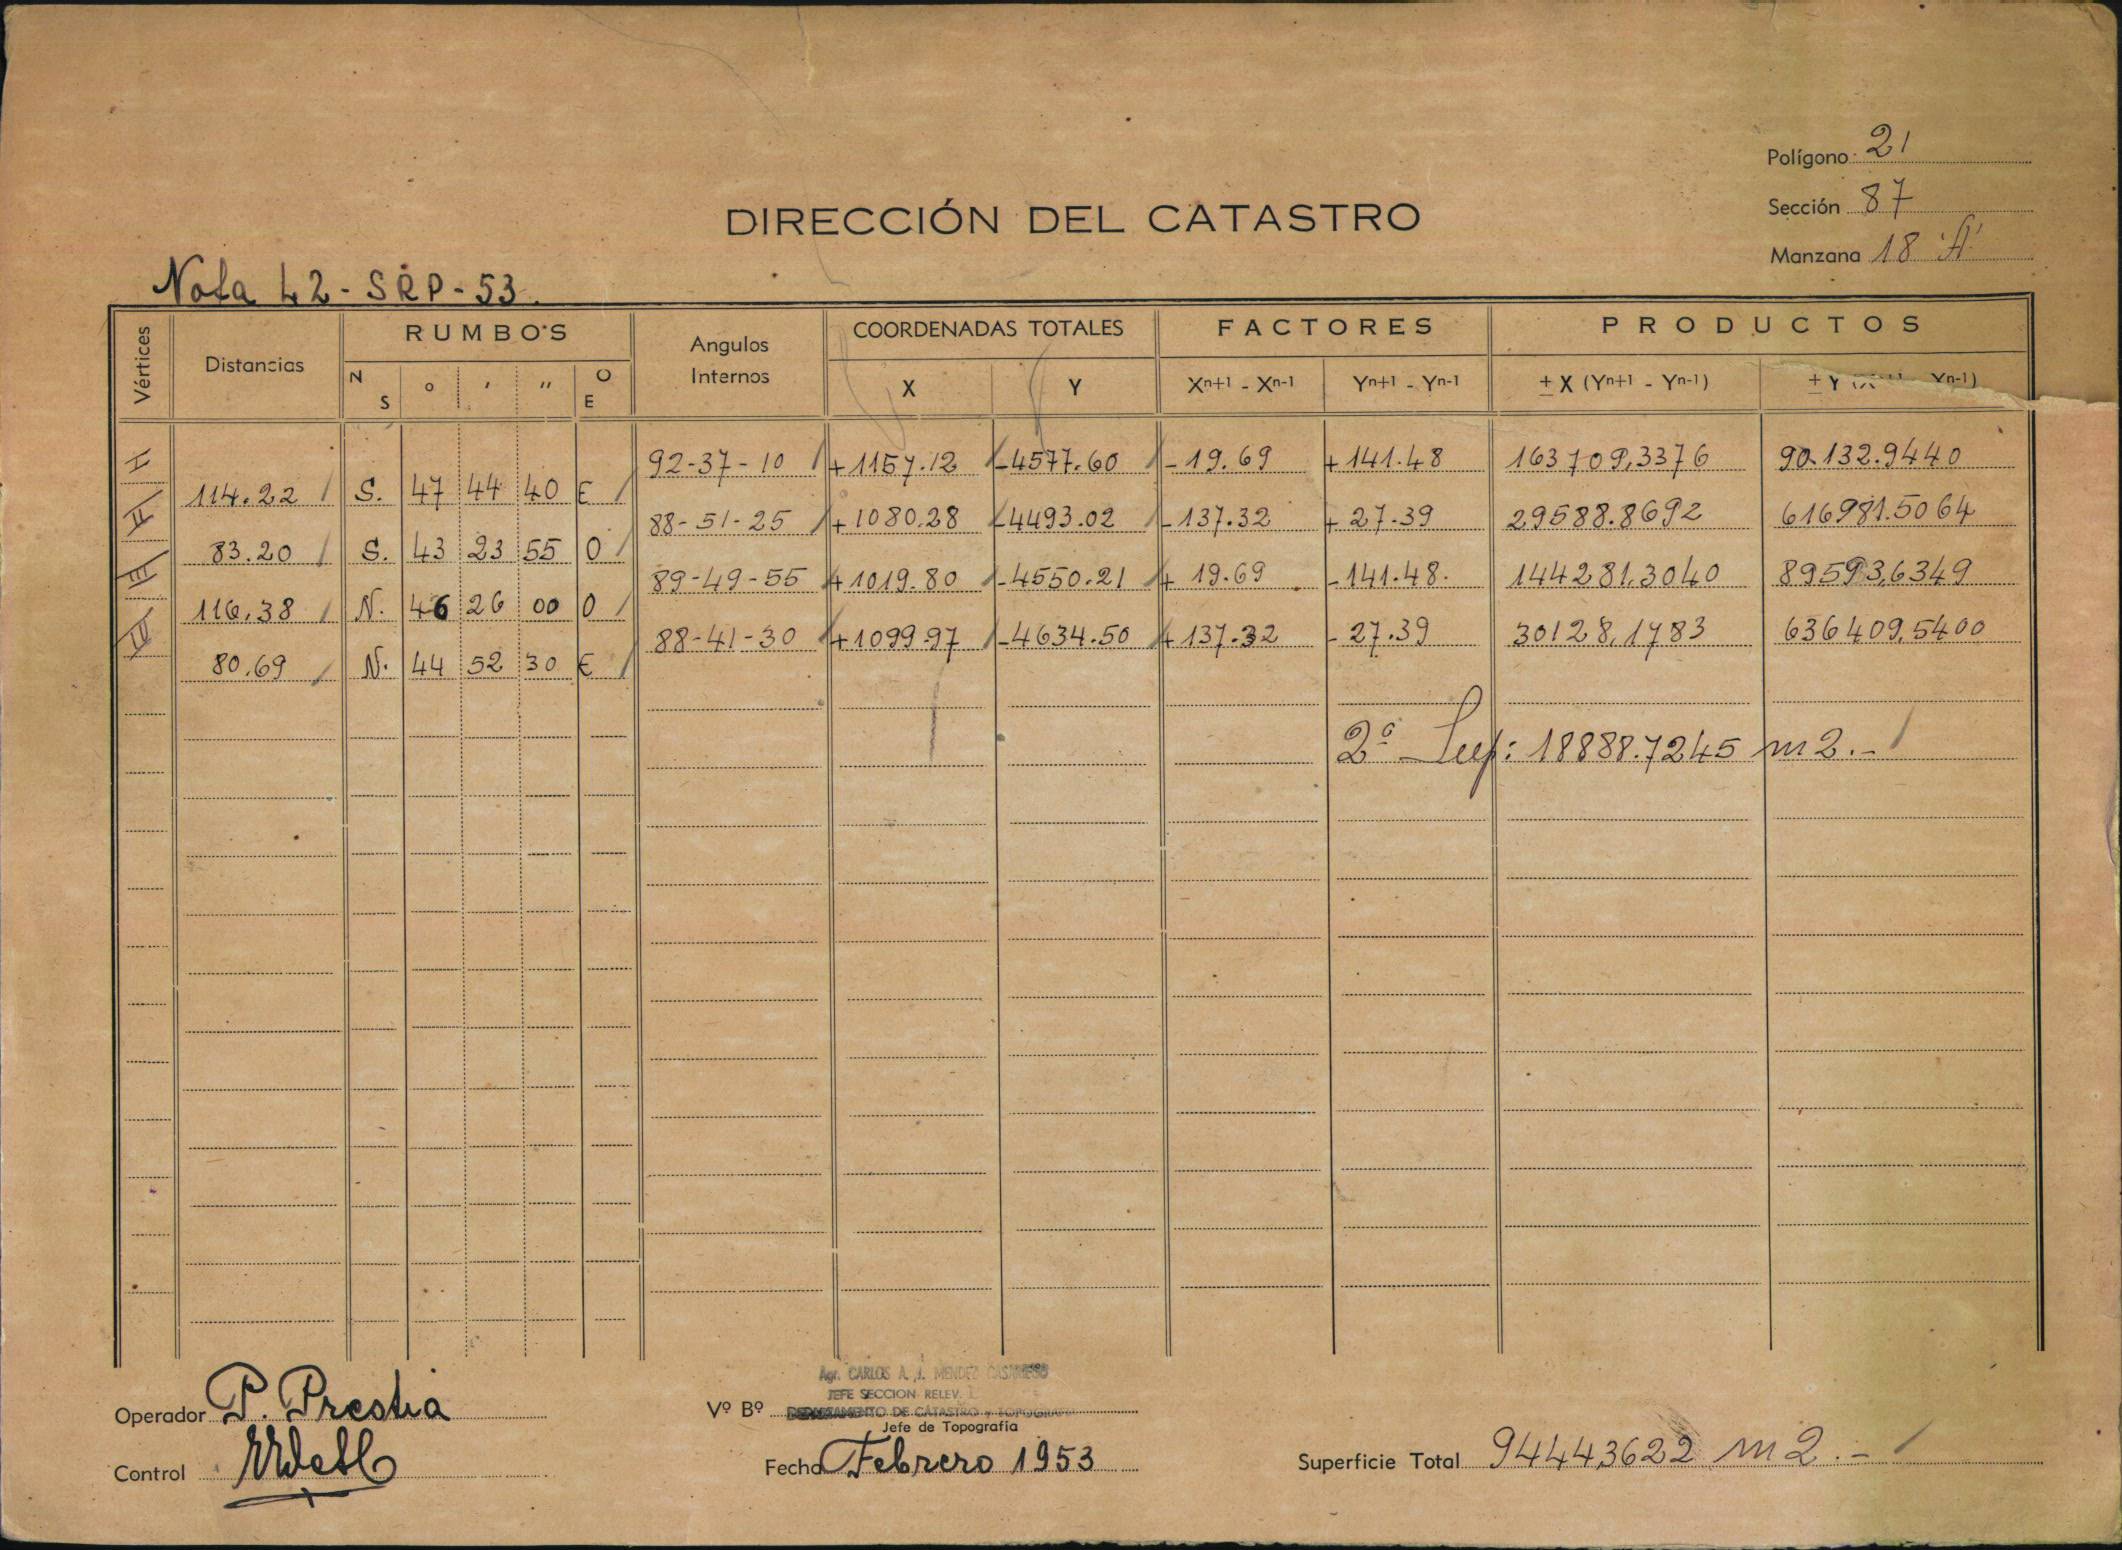 Polígono 21
Sección 87
Manzana 18 'A'
DIRECCIÓN DEL CATASTRO
Nota 42 - SRP - 53.
Vértices Distancias RUMBOS Angulos Internos COORDENADAS TOTALES FACTORES PRODUCTOS
N S ° ' '' O E X Y Xn+1 - Xn-1 Yn+1 - Yn-1 ± X (Yn+1 - Yn-1) ± Y
I 92-37-10 +1157.12 -4577.60 -19.69 +141.48 163709,3376 90.132.9440
114.22 S. 47 44 40 E
II 88-51-25 +1080.28 -4493.02 -137.32 +27.39 29588.8692 616981.5064
83.20 S. 43 23 55 O
III 89-49-55 +1019.80 -4550.21 +19.69 -141.48. 144281,3040 89593,6349
116,38 N. 46 26 00 O
IV 88-41-30 +1099.97 -4634.50 +137.32 -27.39 30128,1783 636409,5400
80,69 N. 44 52 30 E
2ª Sup: 18888.7245 m2.-
Agr. CARLOS A. J. MENDEZ CASARIEGO
JEFE SECCION RELEV.
Operador P. Prestia Vº Bº DEPARTAMENTO DE CATASTRO y TOPOGRAFIA
Jefe de Topografía
Control Fecha Febrero 1953 Superficie Total 9444,3622 m2.-